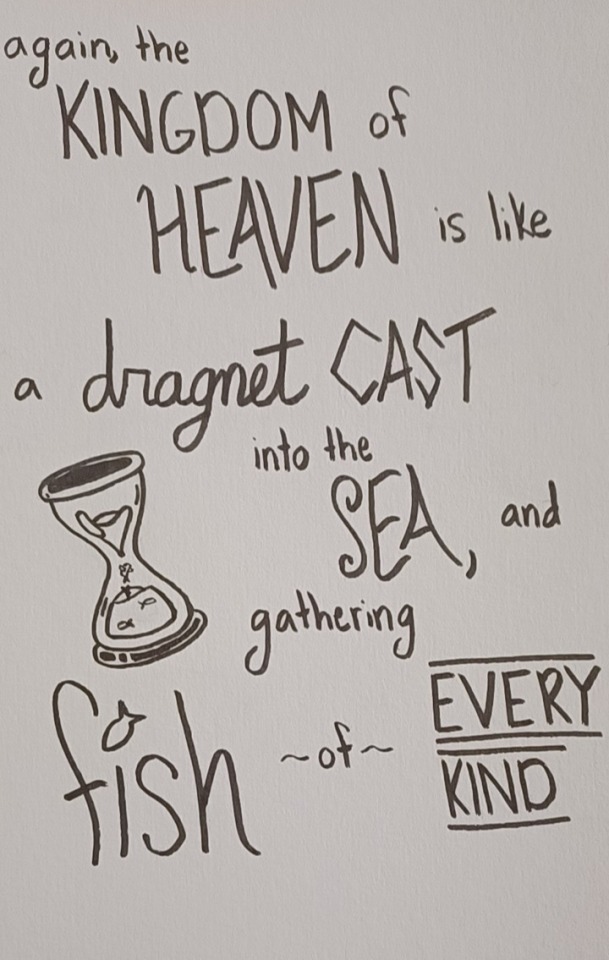 again, the
KINGDOM of
HEAVEN is like
a dragnet CAST
into the
SEA, and
gathering
fish ~of~ EVERY
KIND